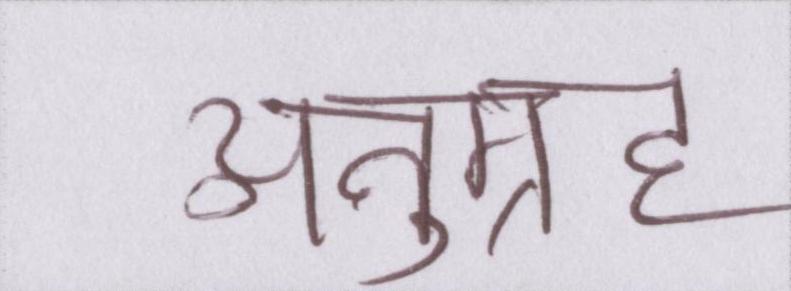 अनुग्रह